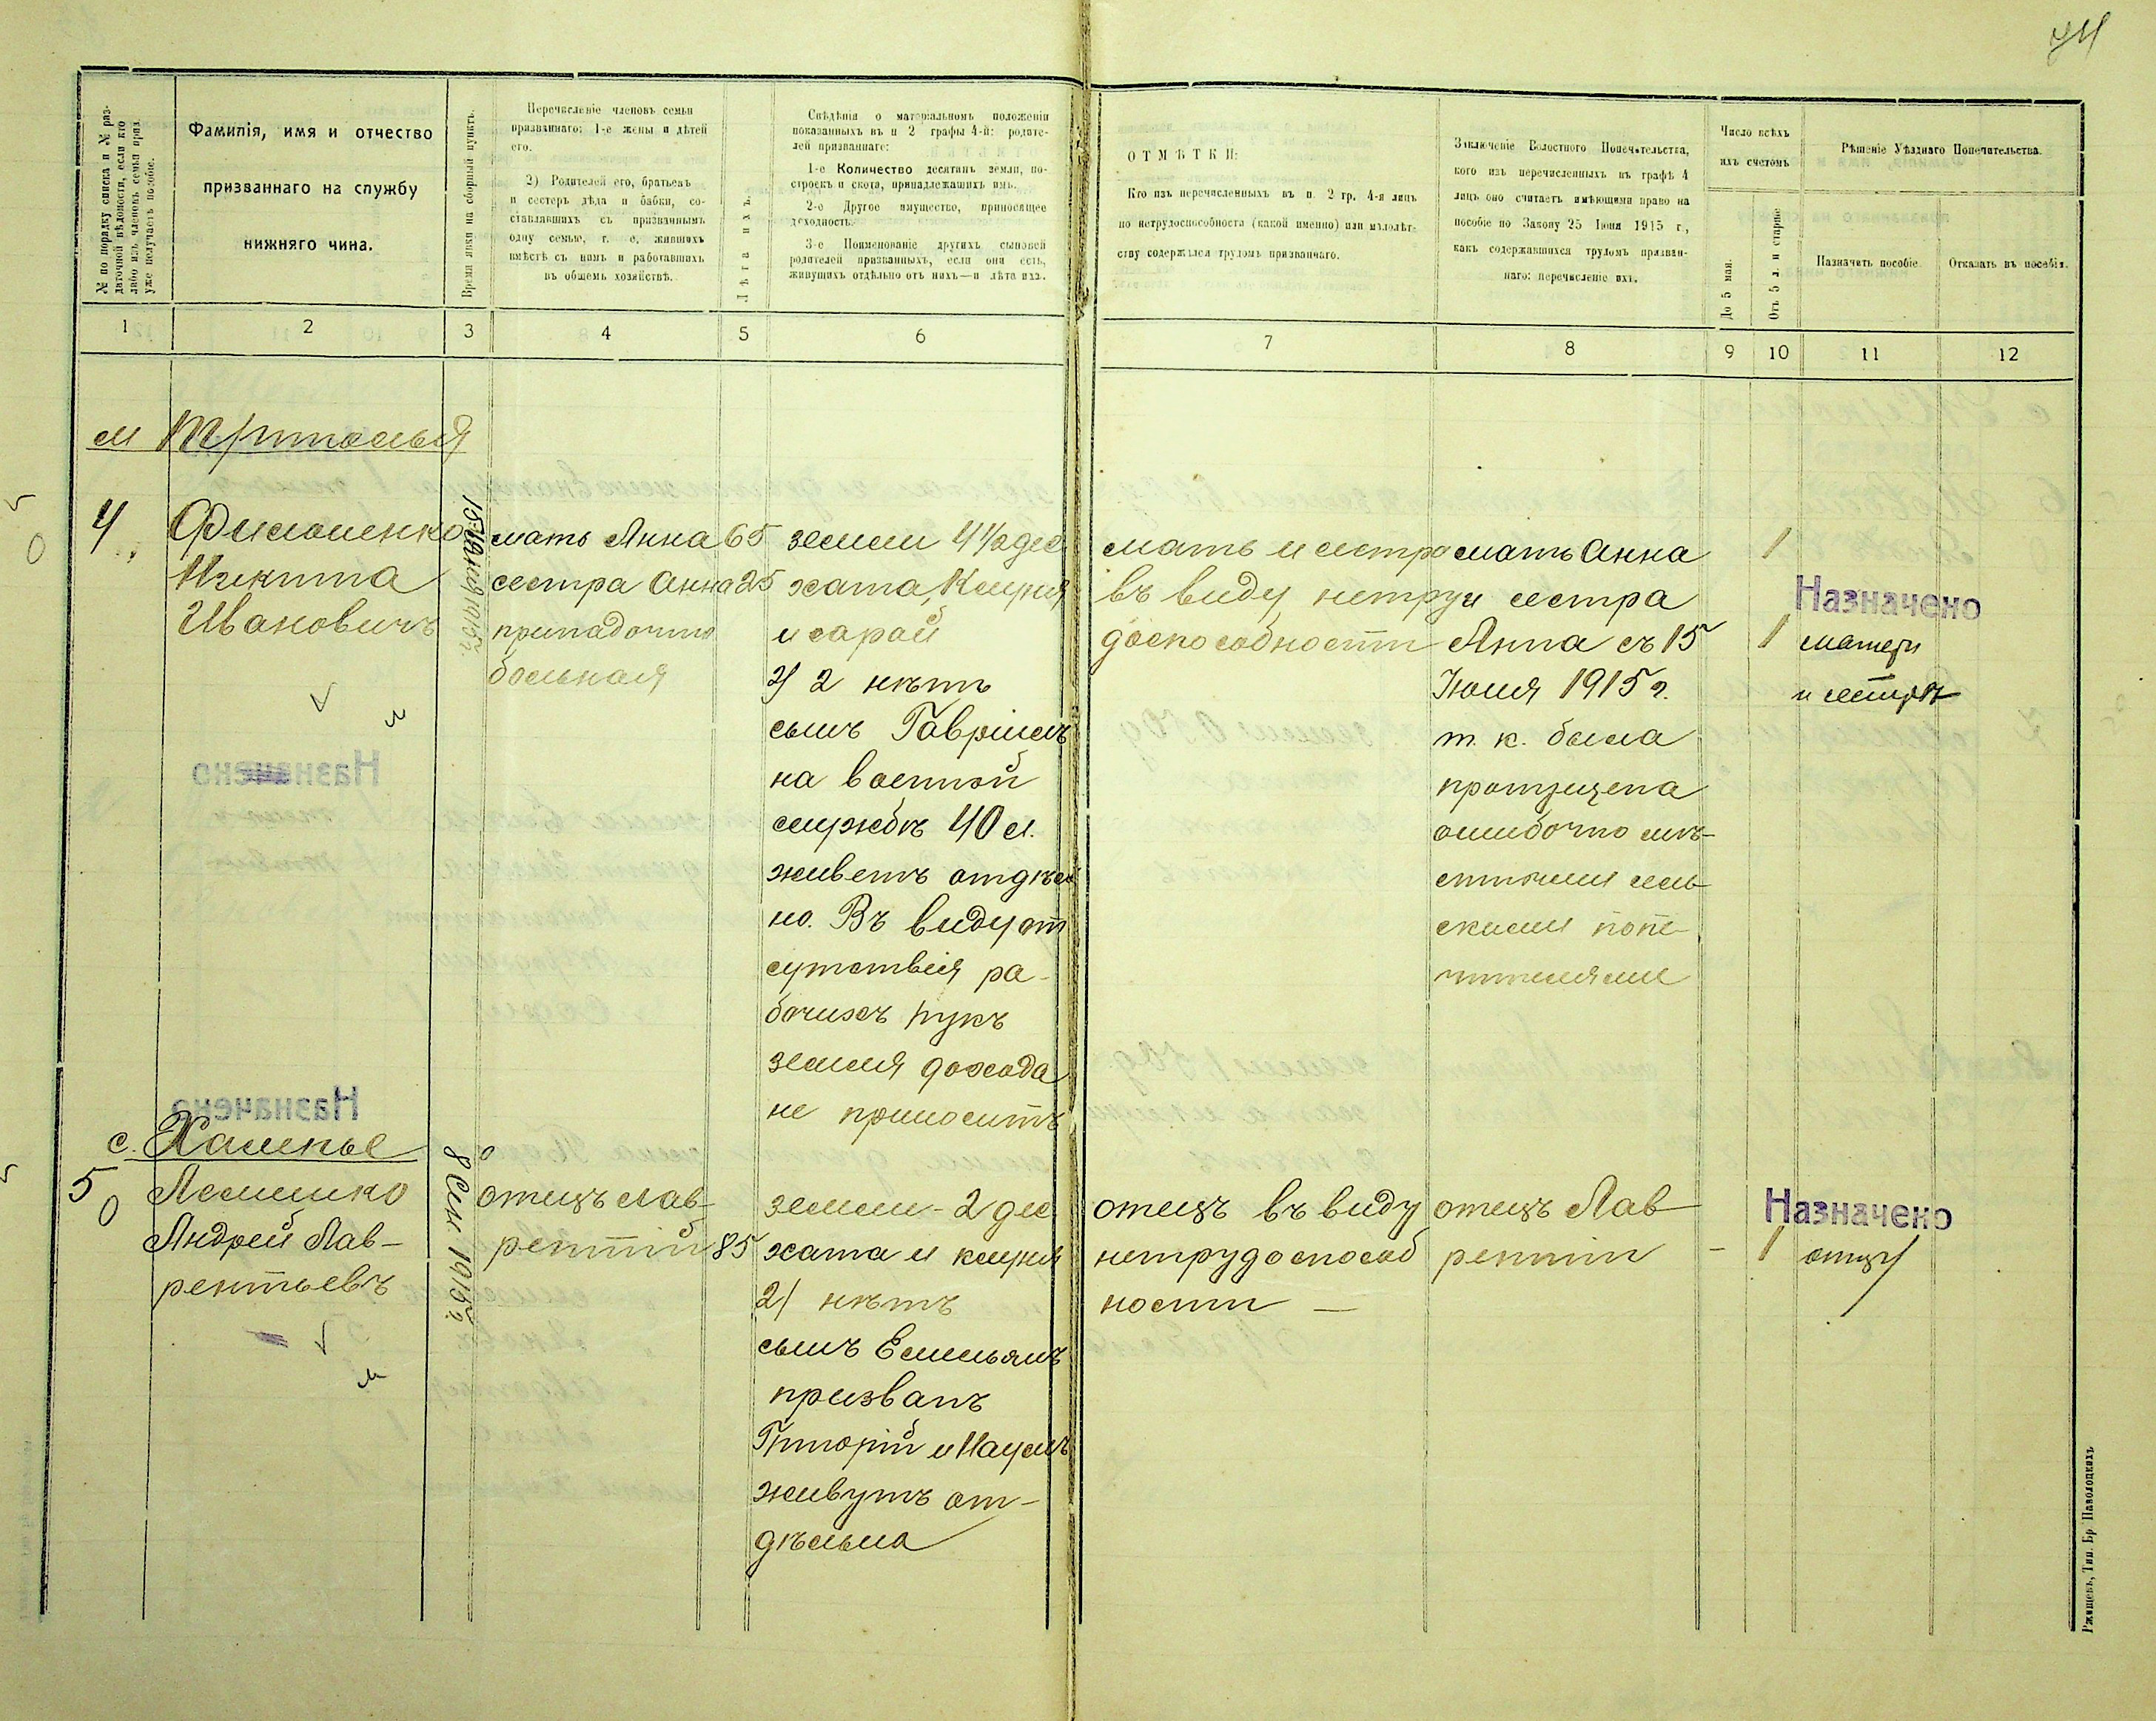 № по порядку списка и № раз-
даточной вѣдомости, если кто
либо изъ членовъ семьи приз.
уже получаетъ пособіе.
Фамилія, имя и отчество
призваннаго на службу
нижняго чина.
Время явки на сборный пунктъ.
Перечисленіе членовъ семьи
призваннаго: 1-е жены и дѣтей
его.
2) Родителей его, братьевъ
и сестеръ дѣда и бабки, со-
ставлявшихъ съ призваннымъ
одну семью, т. е, жившихъ
вмѣстѣ съ нимъ и работавшихъ
въ общемъ хозяйствѣ.
Лѣта ихъ.
Свѣдѣнія о матеріальномъ положеніи
показанныхъ въ п 2 графы 4-й: родите-
лей призваннаго:
1-е Количество десятинъ земли, по-
строекъ и скота, принадлежащихъ имъ.
2-е Другое имущество, приносящее
доходность.
3-е Поименованіе другихъ сыновей
родителей призванныхъ, если они есть,
живущихъ отдѣльно отъ нихъ—и лѣта ихъ.
ОТМѢТКИ:
Кто изъ перечисленныхъ въ п. 2 гр. 4-я лицъ
по нетрудоспособности (какой именно) или малолѣт-
ству содержался трудомъ призваннаго.
Заключеніе Волостного Попечительства,
кого изъ перечисленныхъ въ графѣ 4
лицъ оно считаетъ имѣющими право на
пособіе по Закону 25 Іюня 1915 г.,
какъ содержавшихся трудомъ призван-
наго: перечисленіе ихъ.
Число всѣхъ
ихъ счетомъ
До 5 мал.
Отъ 5 л. и старше
Рѣшеніе Уѣзднаго Попечительства.
Назначить пособіе
Отказать въ пособіи.
1 2 3 4 5 6 7 8 9 10 11 12
м Триполья
4
Филоненко
Никита
Ивановичъ
мать Анна 65
сестра Анна 25
припадочно
больная
земли 4 1/2 дес
хата, Клуня
и сарай
2) 2 нѣтъ
сынъ Гавріилъ
на военной
службѣ 40 л.
живетъ отдѣль
но. Въ виду от
сутствія ра-
бочихъ рукъ
земля дохода
не приноситъ
мать и сестра
въ виду нетру
доспособности
мать Анна
и сестра
Анна съ 15
Іюля 1915 г.
т. к. была
пропущена
ошибочно мѣ-
стными сель-
скими попе-
чителями
1
1
Назначено
матери
и сестрѣ
с. Халепье
5
Лемешко
Андрей Лав-
рентьевъ
8 Сен 1915 г.
отецъ Лав-
рентій 85
земли - 2 дес
хата и клуня
2) нѣтъ
сынъ Емельянъ
призванъ
Григорій и Наумъ
живутъ от-
дѣльно
отецъ въ виду
нетрудоспособ
ности —
отецъ Лав-
рентій
- 1
Назначено
отцу
Ржищевъ, Тип. Бр. Паволоцкихъ